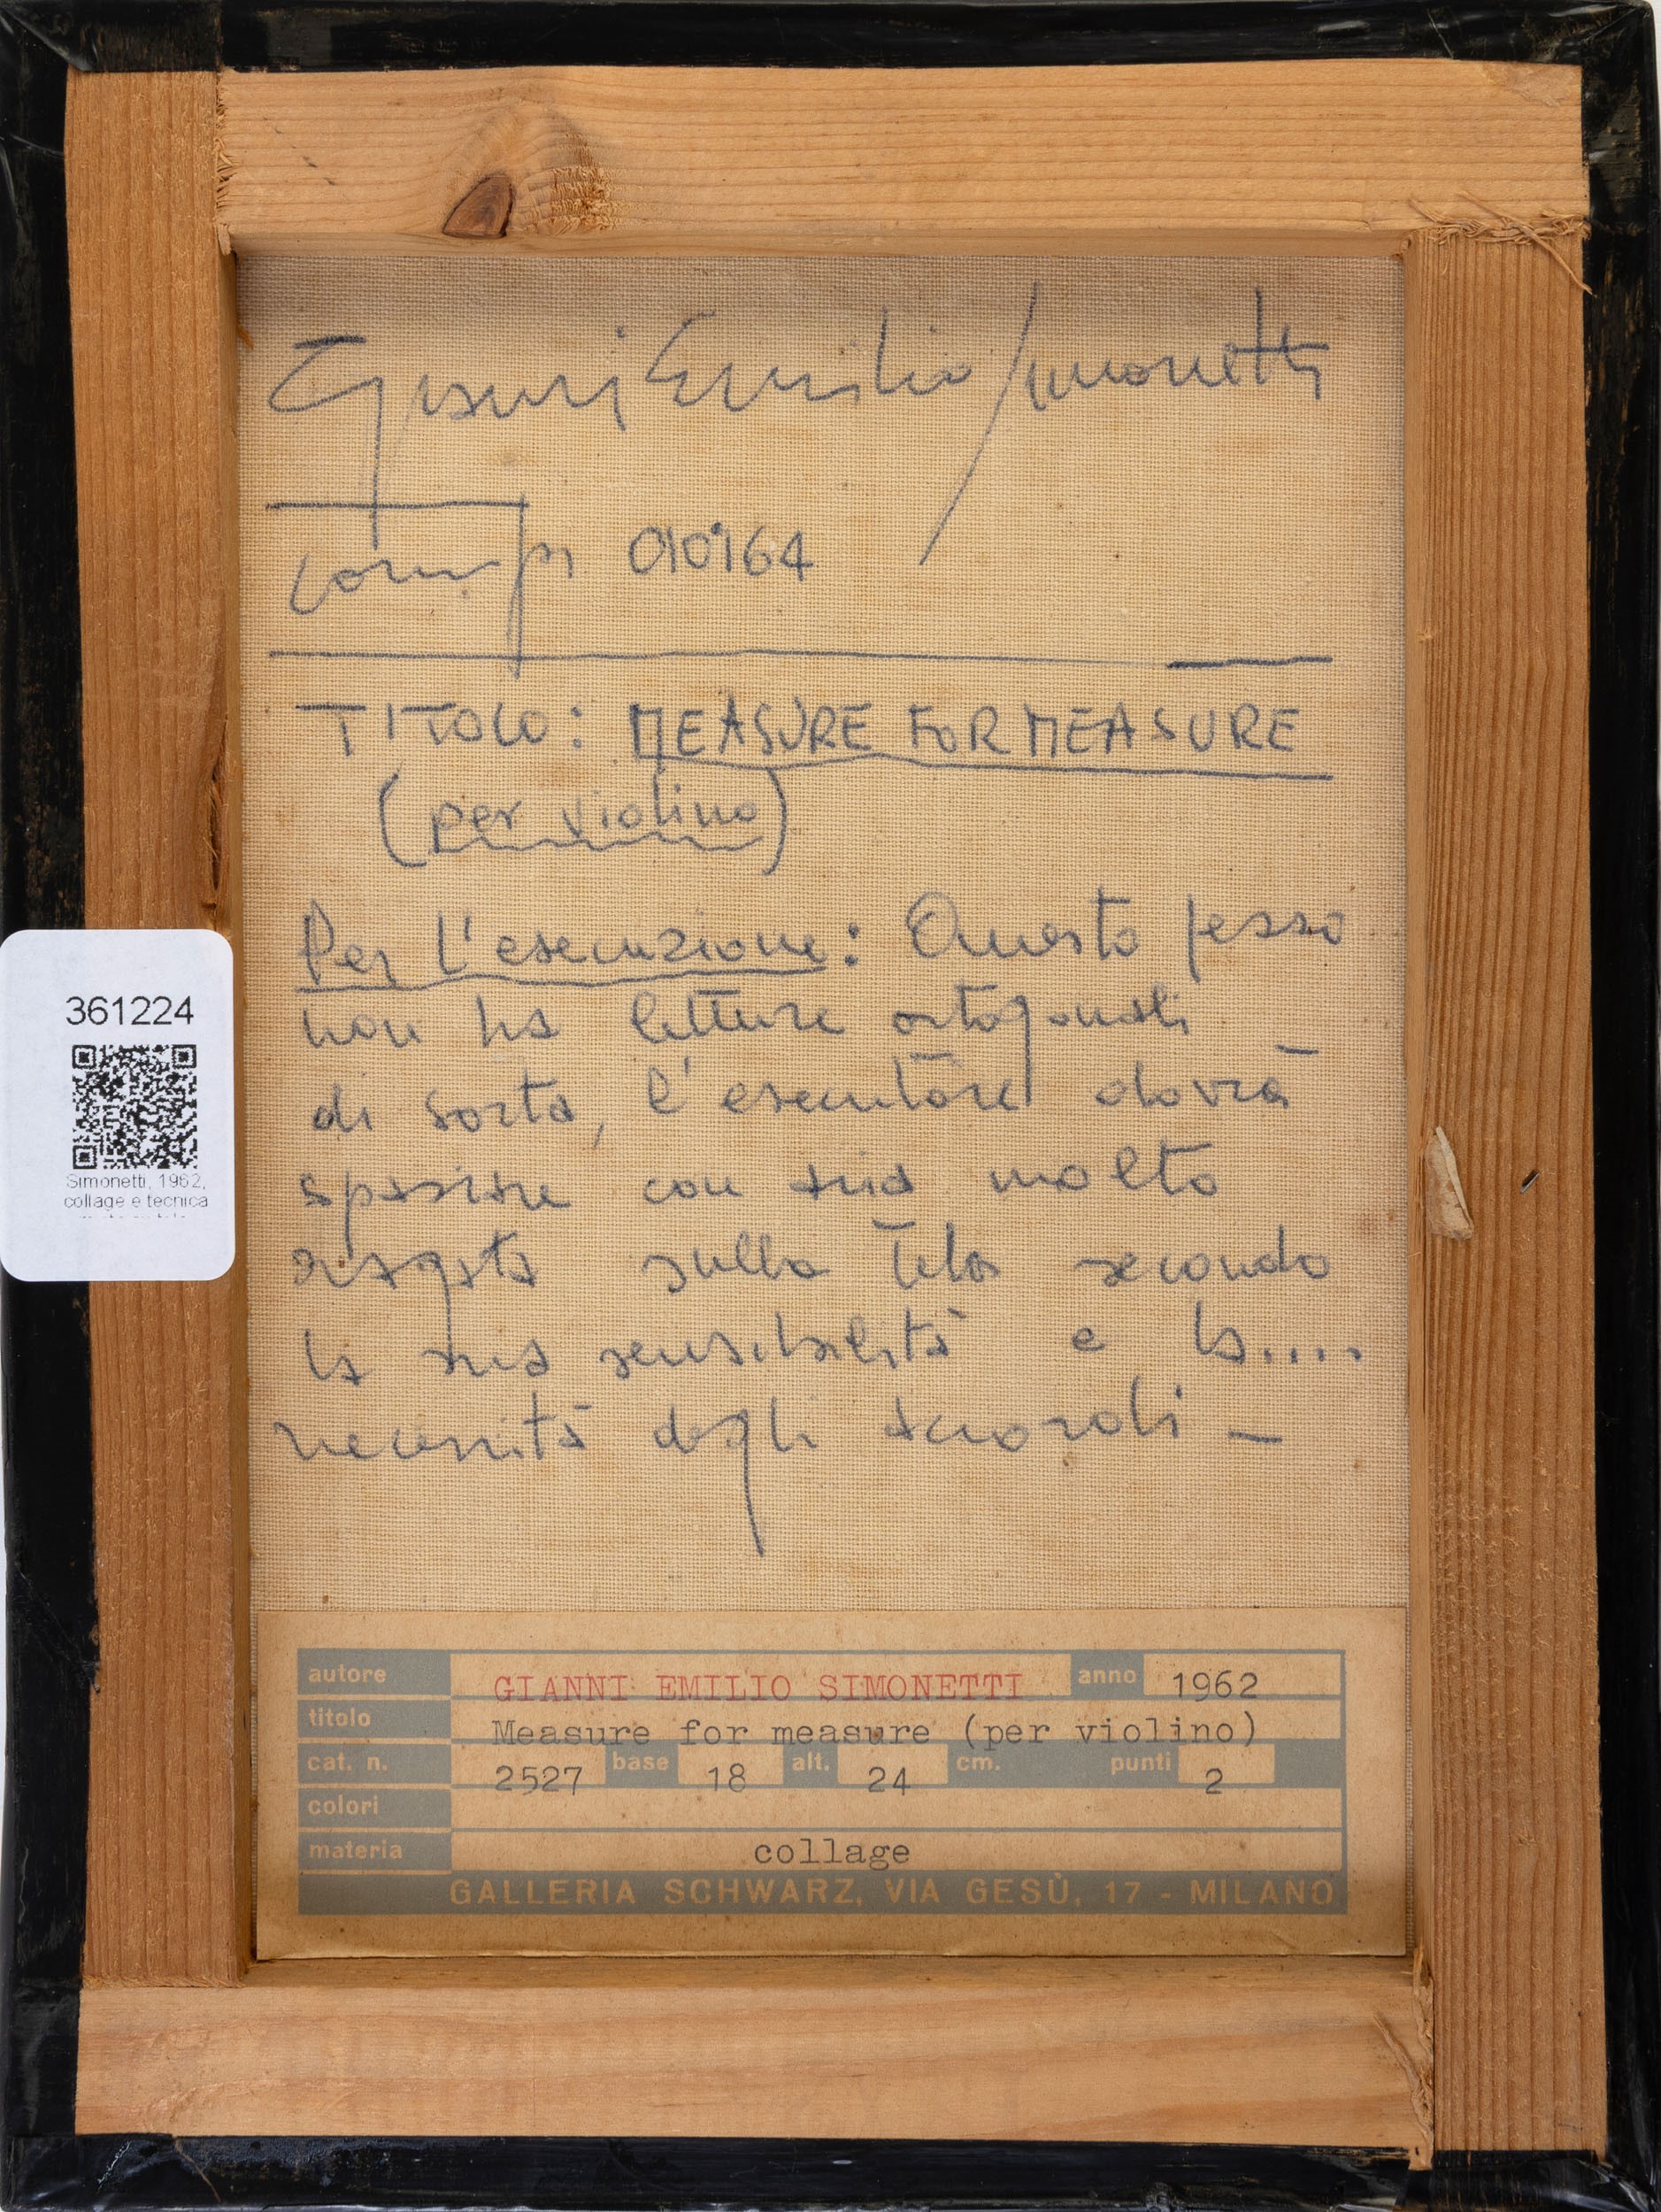 Gianni Emilio Simonetti
comp. 010164
TITOLO: MEASURE FOR MEASURE
(per violino)
Per l'esecuzione: Questo pezzo
non ha letture ortogonali
di sorta, l'esecutore dovrà
spaziare con aria molto
sulla tela secondo
la sua sensibilità e la....
necessità degli accordi —
361224
Simonetti, 1962,
collage e tecnica
autore GIANNI EMILIO SIMONETTI anno 1962
titolo Measure for measure (per violino)
cat. n. 2527 base 18 alt. 24 cm. punti 2
colori
materia collage
GALLERIA SCHWARZ, VIA GESÙ, 17 - MILANO